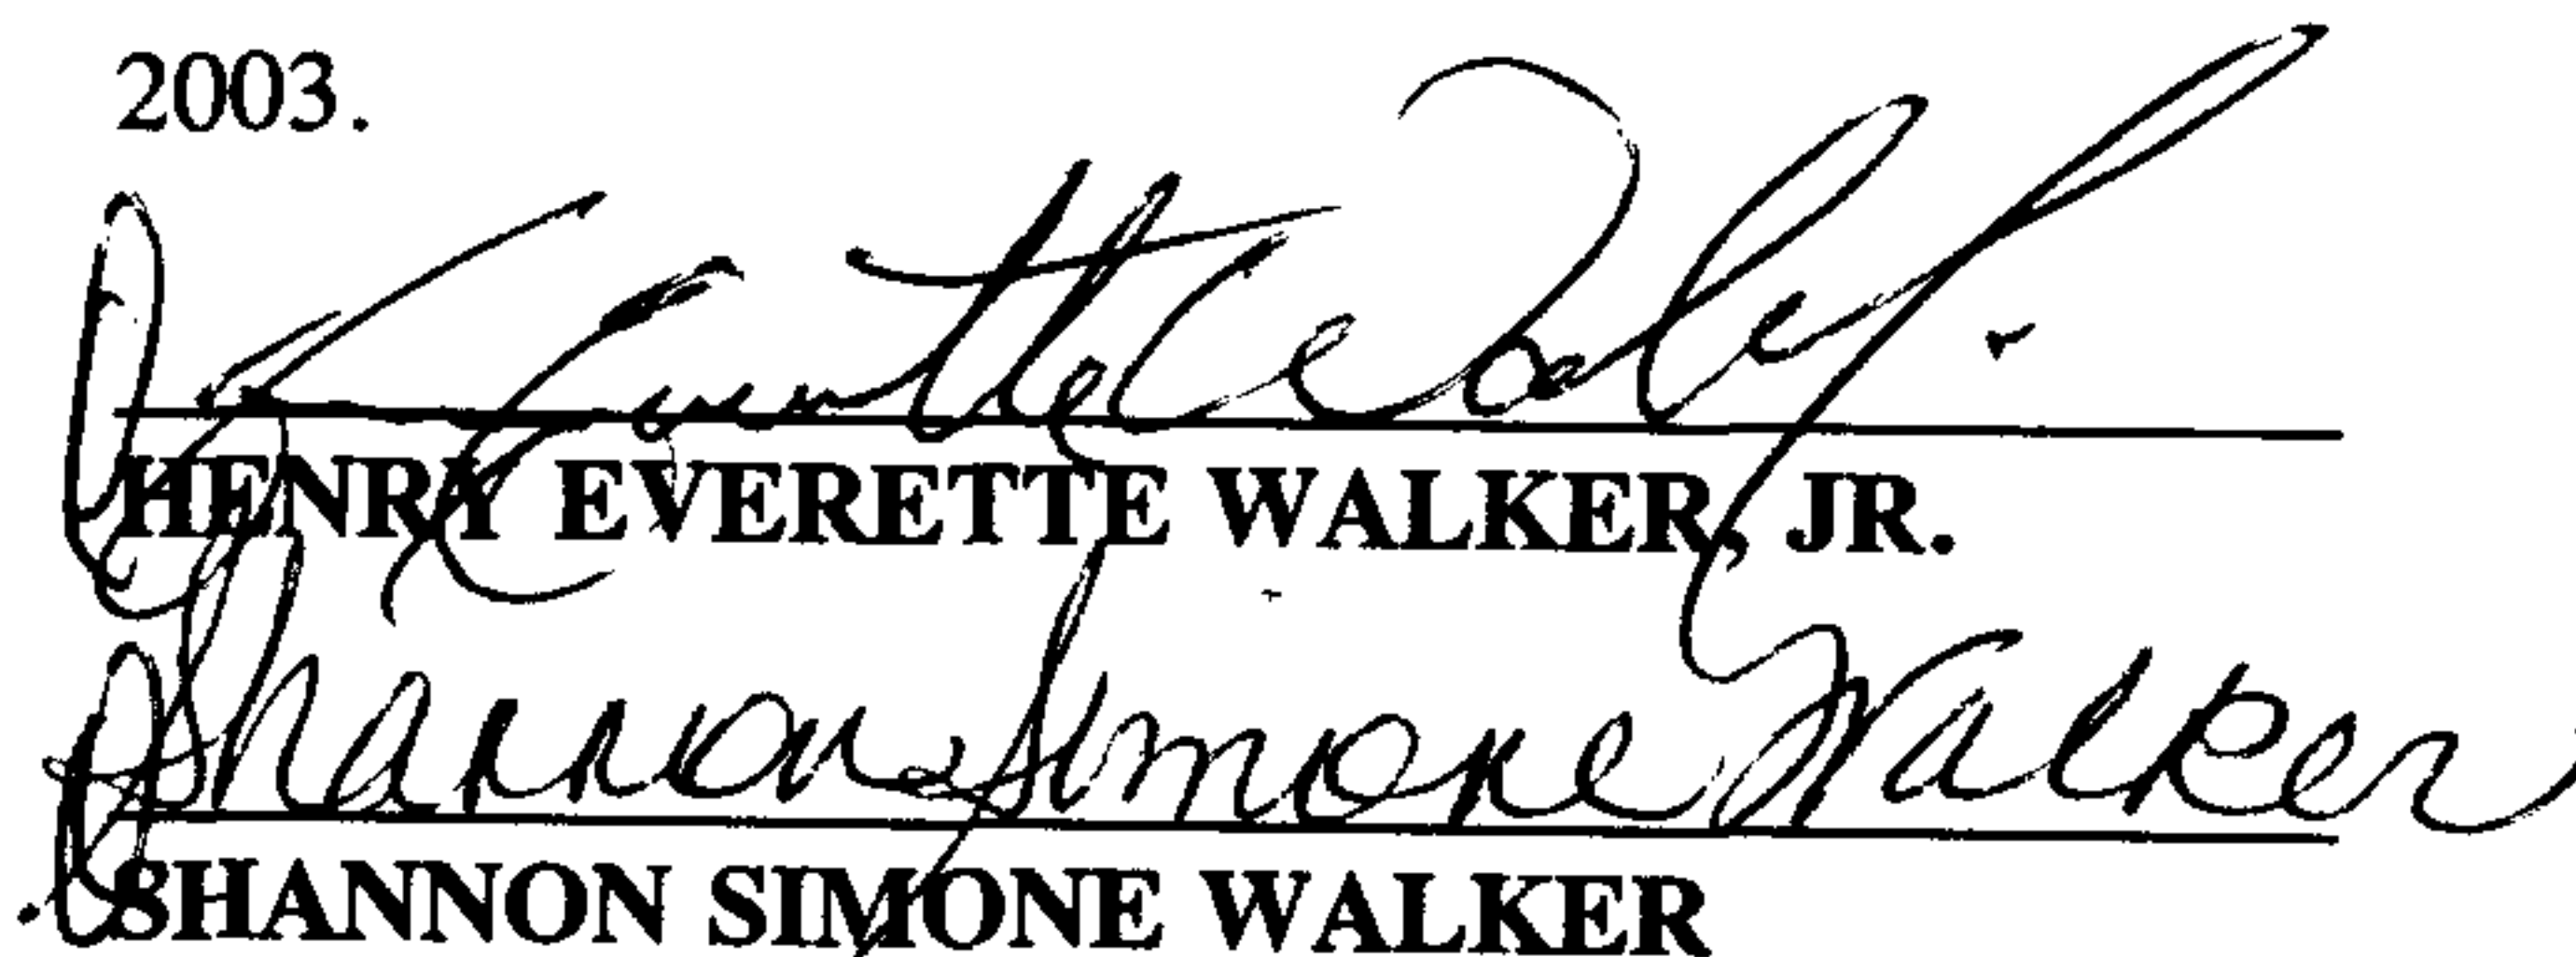 2003.
Henry Everette Walker Jr.
HENRY EVERETTE WALKER, JR.
Shannon Simone Walker
SHANNON SIMONE WALKER